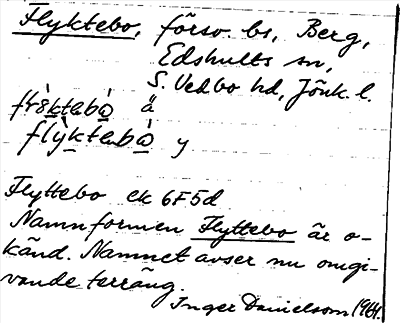 Flyktebo, försv. bs, Berg,
Edshults sn,
S. Vedbo hd, Jönk. l.
ä
flỳktabò y
Flyttebo ek 6F5d
Namnformen Flyttebo är o-
känd. Namnet avser nu omgi-
vande terräng.
Inger Danielsson 1964.